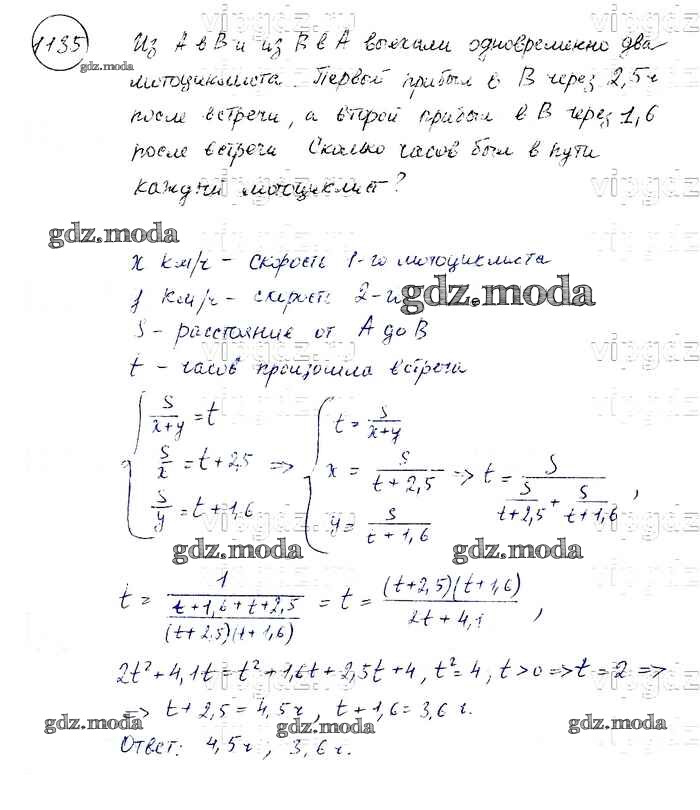 1135 Из А в В и из В в А выехали одновременно два
gdz.moda
мотоциклиста. Первый прибыл в В через 2,5 ч
после встречи, а второй прибыл в В через 1,6
после встречи Сколько часов был в пути
каждый мотоциклист?
gdz.moda
x км/ч - скорость 1-го мотоциклиста
y км/ч - скорость 2-го
gdz.moda
S - расстояние от А до В
t - часов произошла встреча
S/(x+y) = t
S/x = t+2,5 =>
S/y = t+1,6
t = S/(x+y)
x = S/(t+2,5) => t = S/(S/(t+2,5) + S/(t+1,6)),
y = S/(t+1,6)
gdz.moda
gdz.moda
t = 1/((t+1,6+t+2,5)/((t+2,5)(t+1,6))) = t = (t+2,5)(t+1,6)/(2t+4,1),
2t²+4,1t = t²+1,6t+2,5t+4, t²=4, t>0 => t=2 =>
=> t+2,5=4,5 ч, t+1,6=3,6 ч.
gdz.moda
gdz.moda
gdz.moda
Ответ: 4,5 ч, 3,6 ч.
vipgdz.ru
vipgdz
vipgdz
vipgdz
vipgdz
vipgdz